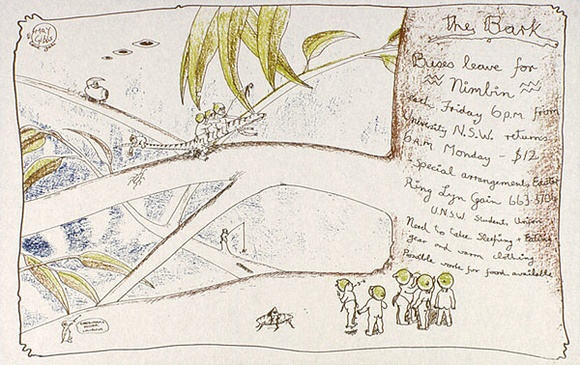 MAY
Gibbs
The Bark
Buses leave for
Nimbin
each Friday 6pm from
University N.S.W. returns
6 A.M Monday - $12
Special arrangements Easter
Ring Lyn Gain 663
U.N.S.W. Students Union
Need to take Sleeping + Eating
gear and warm clothing
Possible work for food available